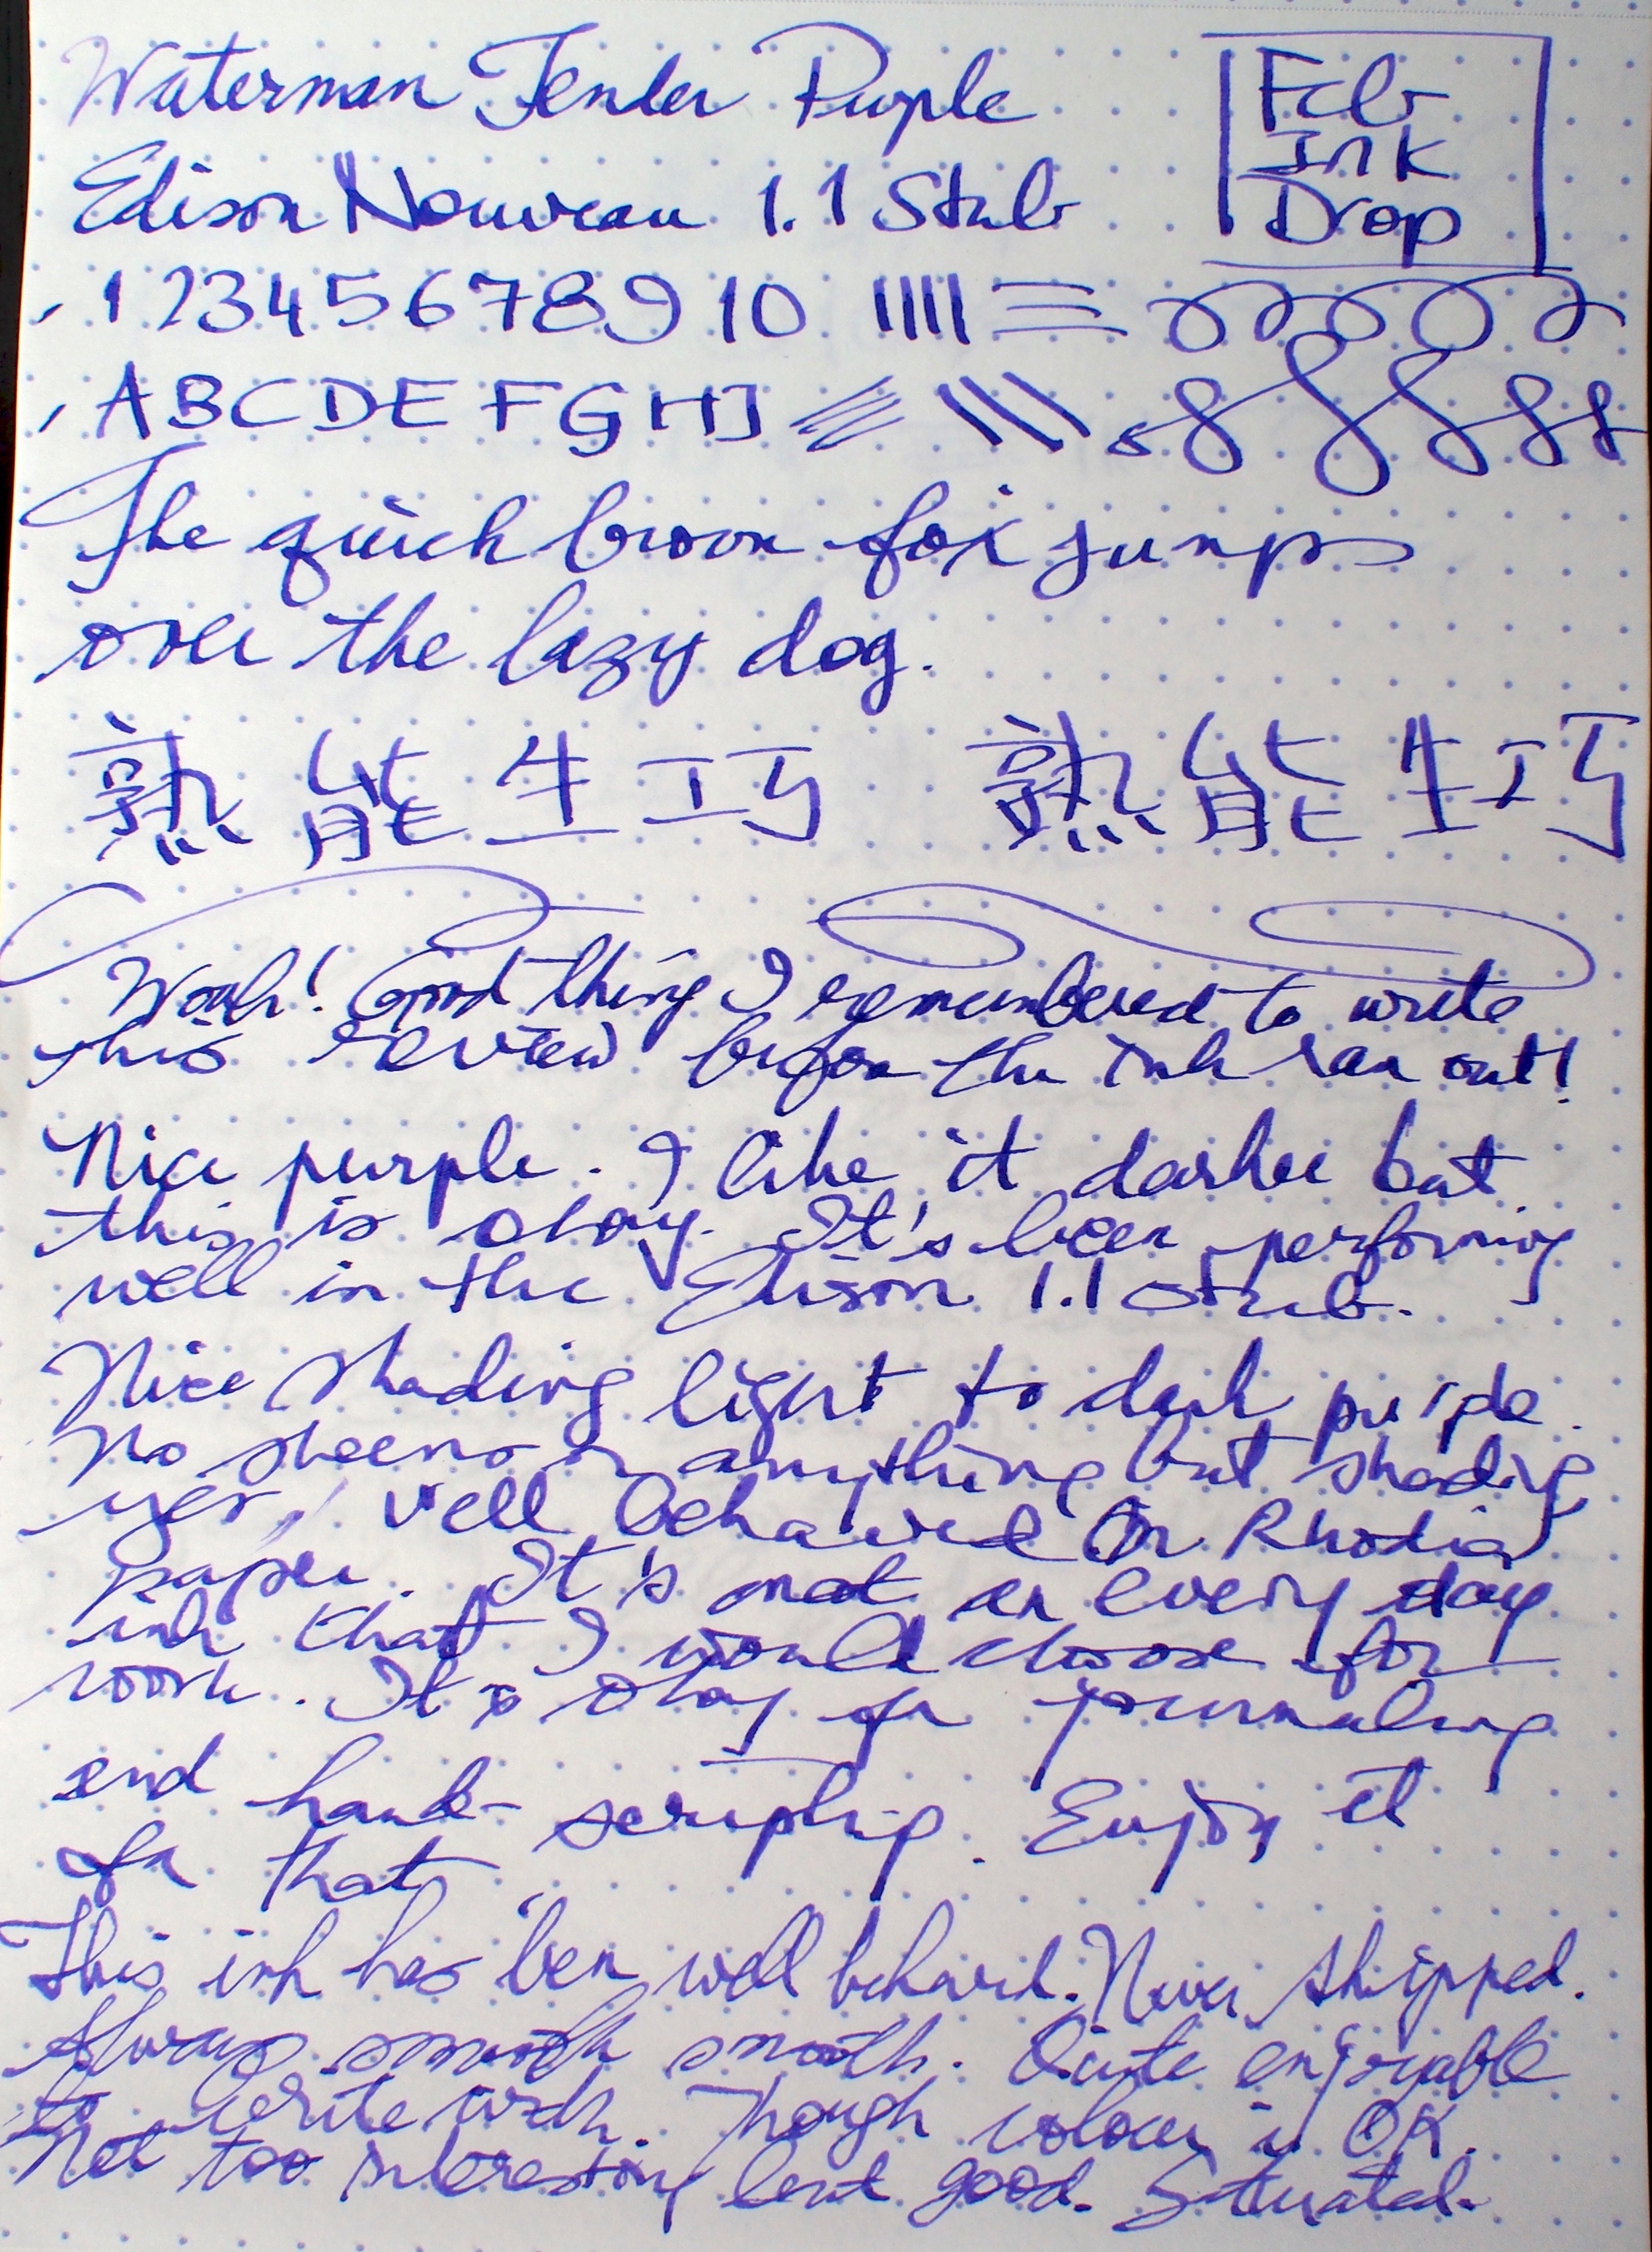 Waterman Tender Purple
Feb
Ink
Drop
Edison Nouveau 1.1 Stub
1 2 3 4 5 6 7 8 9 10
A B C D E F G H I J
The quick brown fox jumps
over the lazy dog.
熟能生巧 熟能生巧
Woah! Good thing I remembered to write
this review before the ink ran out!
Nice purple. I like it darker but
this is okay. It's been performing
well in the Edison 1.1 stub.
Nice shading light to dark purple.
No sheens or anything but shading,
yes, well behaved on Rhodia
paper. It's not an every day
ink that I would choose for
work. It's okay for journaling
and hand-scripting. Enjoy it
for that
This ink has been well behaved. Never skipped.
Always smooth smooth. Quite enjoyable
to write with. Though colour is OK.
Not too interesting but good. Saturated.